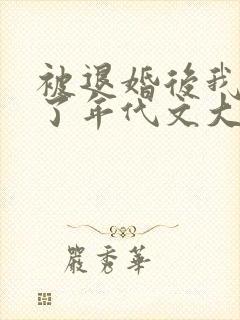 被退婚後我
了年代文大
嚴秀華